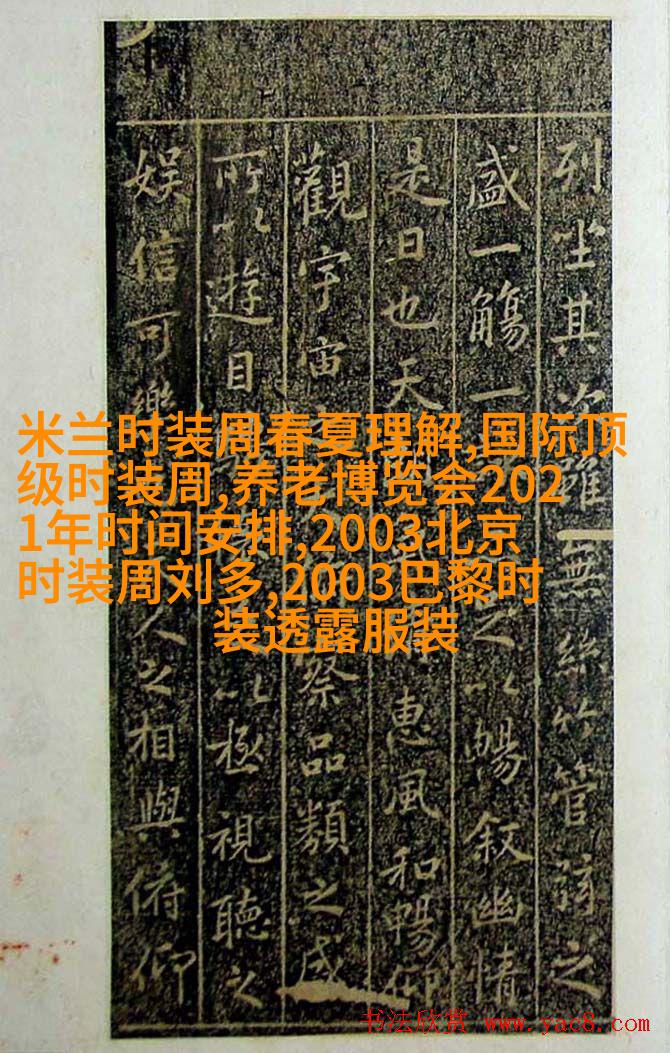 米兰时装周春夏理解,国际顶
级时装周,养老博览会202
1年时间安排,2003北京
时装周刘多,2003巴黎时
装透露服装
列坐其次雖無絲竹管弦之
盛一觴一之以暢叙幽情
是日也天惠風和暢仰
觀宇宙察品類之盛
所以遊目以極視聽之
娛信可樂人之相與俯仰
书法欣赏 www.yac8.com